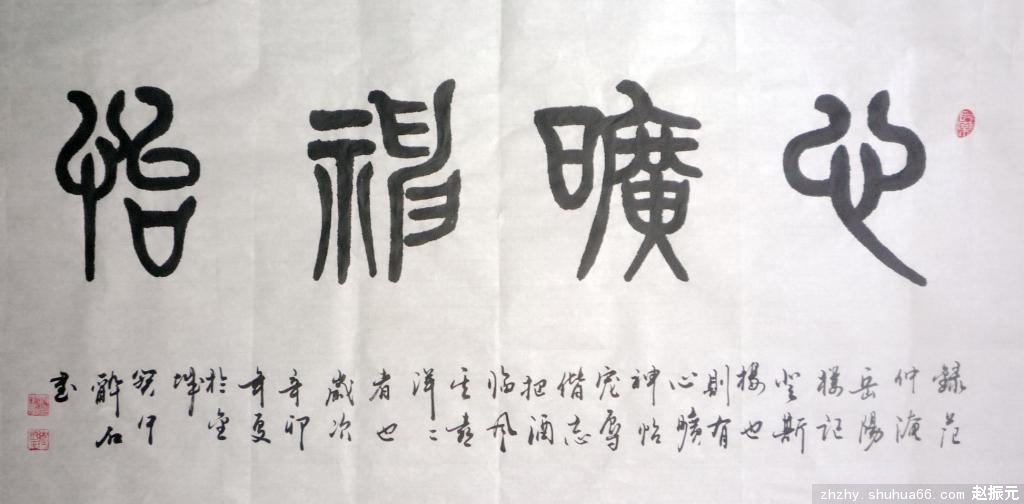 心曠神怡
錄范
仲淹
岳陽
楼記
登斯
楼也
則有
心曠
神怡
宠辱
偕忘
把酒
临风
其喜
洋〻
者也
歲次
辛卯
年夏
於金
城
醉石
书
zhzhy.shuhua66.com 赵振元